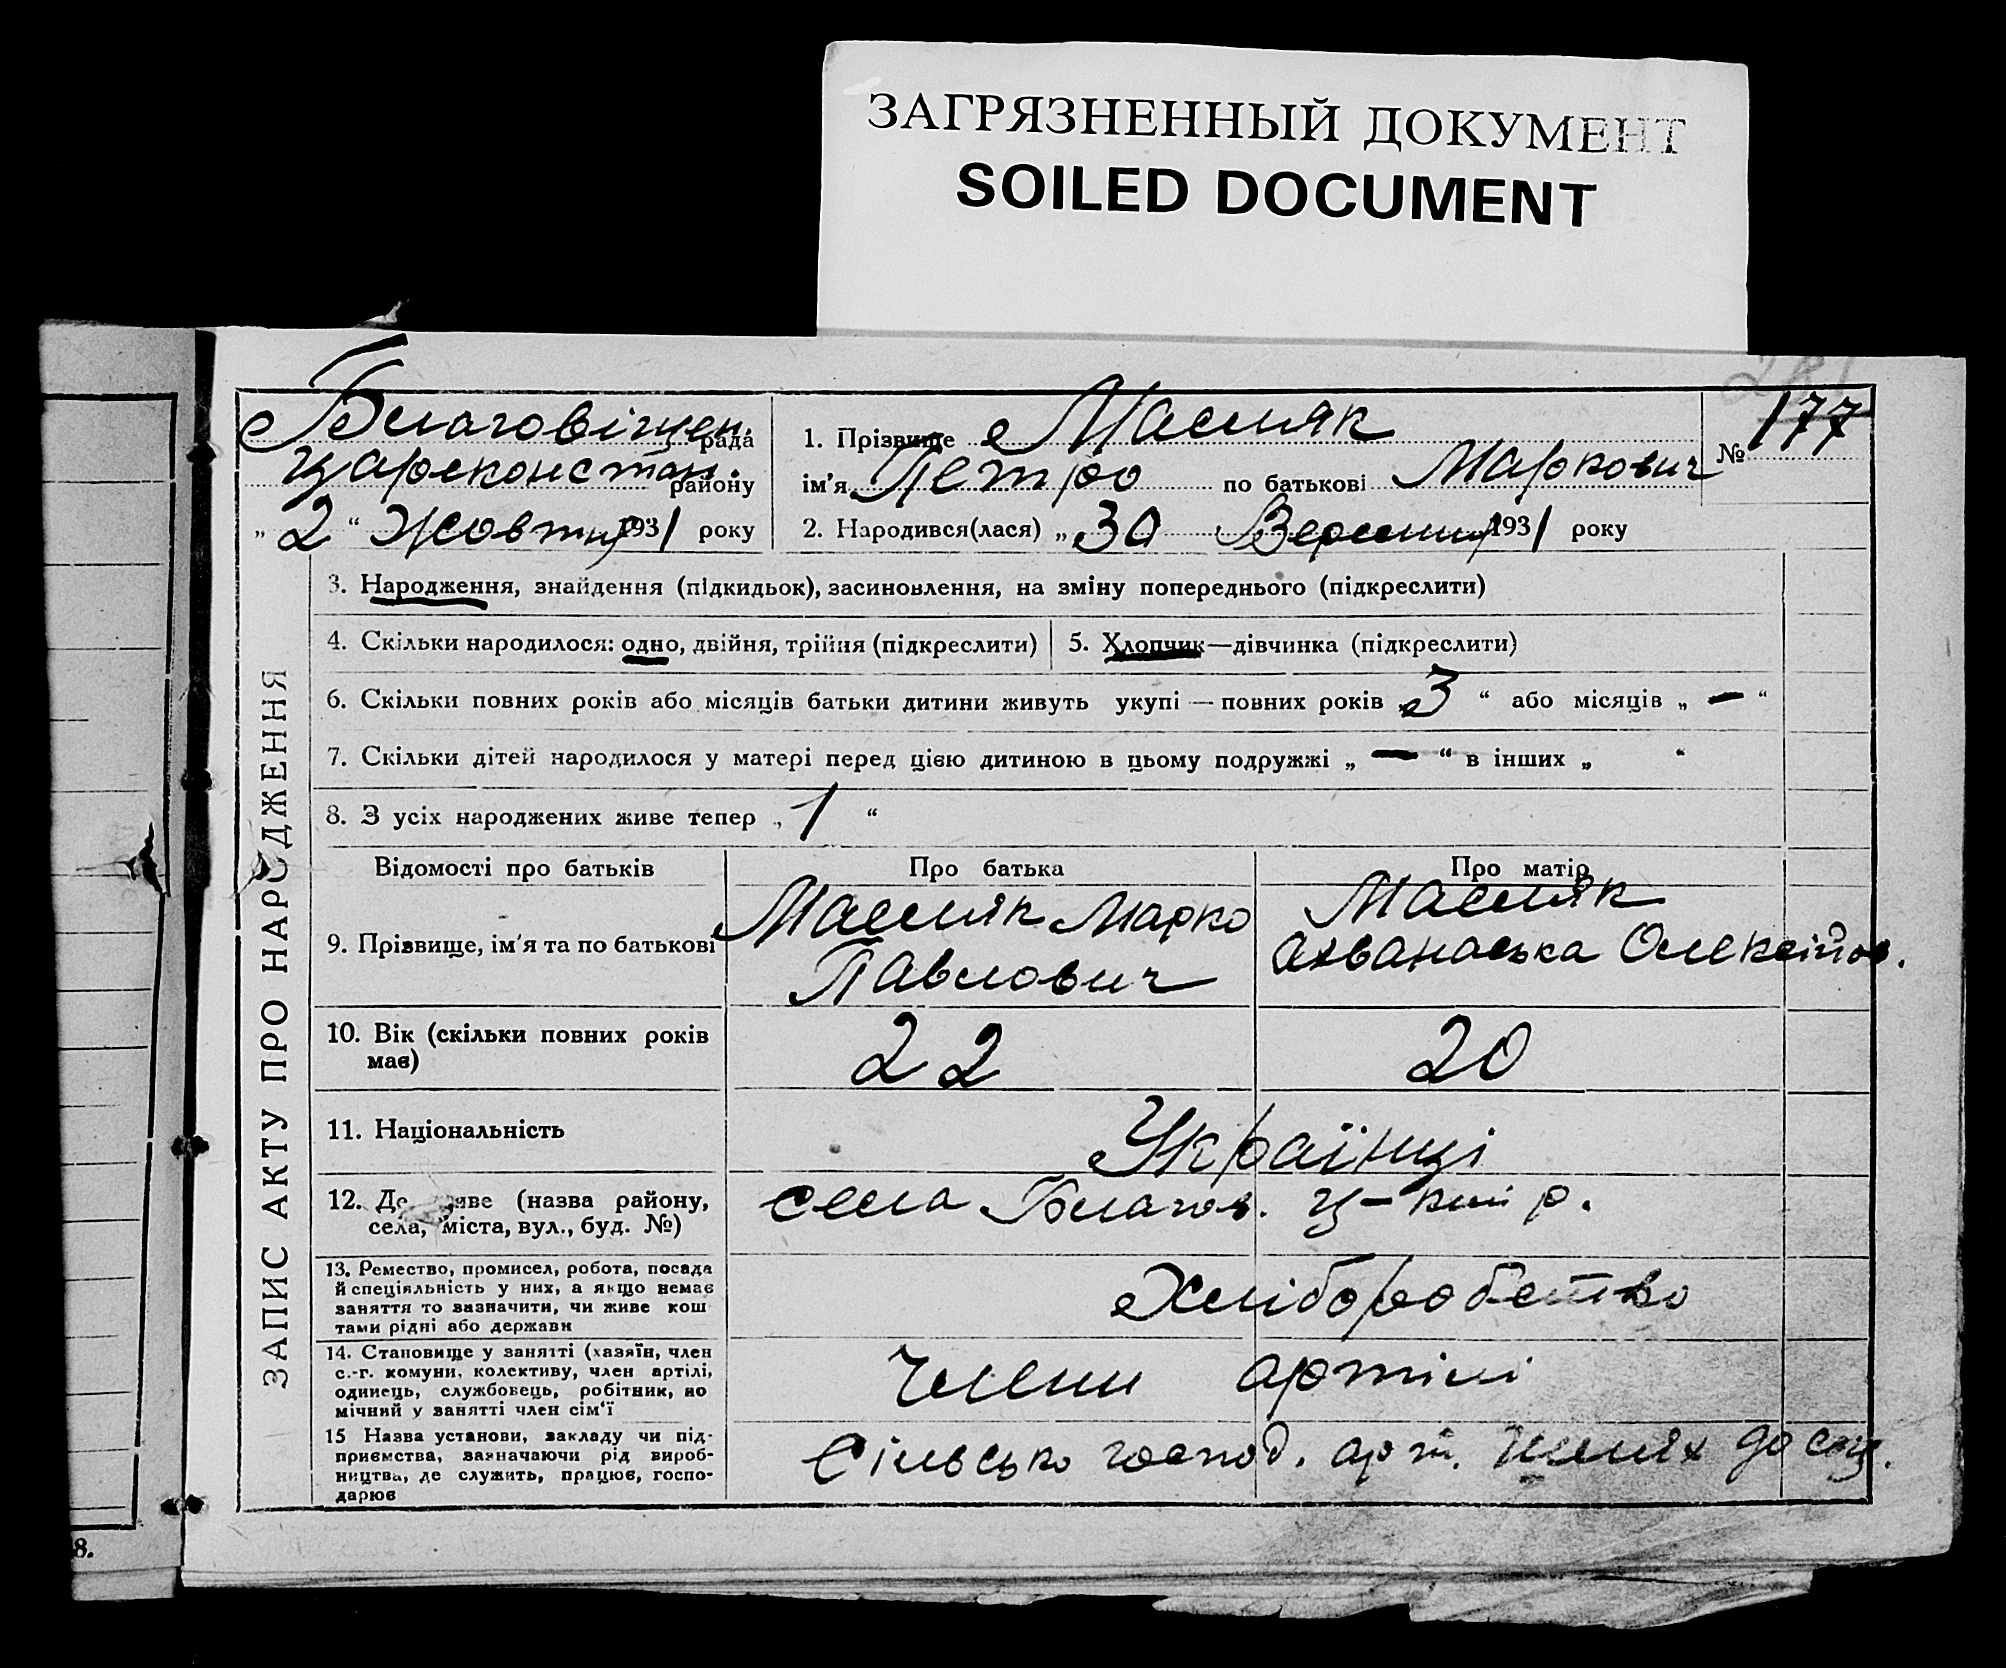 ЗАГРЯЗНЕННЫЙ ДОКУМЕНТ
SOILED DOCUMENT
Благовіщен. рада
Царсконстан. району
„ 2 “ Жовтня 1931 року
1. Прізвище Масляк
ім'я Петро по батькові Маркович
№ 177
2. Народився(лася) „ 30 Вересня 1931 року
ЗАПИС АКТУ ПРО НАРОДЖЕННЯ
3. Народження, знайдення (підкидьок), засиновлення, на зміну попереднього (підкреслити)
4. Скільки народилося: одно, двійня, трійня (підкреслити)
5. Хлопчик—дівчинка (підкреслити)
6. Скільки повних років або місяців батьки дитини живуть укупі — повних років „ 3 “ або місяців „ — “
7. Скільки дітей народилося у матері перед цією дитиною в цьому подружжі „ — “ в інших „ “
8. З усіх народжених живе тепер „ 1 “
Відомості про батьків Про батька Про матір
9. Прізвище, ім'я та по батькові
Масляк Марко
Павлович
Масляк
Ахванаська Олексійов.
10. Вік (скільки повних років
має)
22 20
11. Національність
Українці
12. Де живе (назва району,
села, міста, вул., буд. №)
села Благов. Ц-кий р.
13. Ремество, промисел, робота, посада
й спеціяльність у них, а якщо немає
заняття то зазначити, чи живе кош
тами рідні або держави
Хліборобство
14. Становище у занятті (хазяїн, член
с.-г. комуни, колективу, член артілі,
одинець, службовець, робітник, по
мічний у занятті член сім'ї
члени артілі
15 Назва установи, закладу чи під-
приємства, зазначаючи рід вироб-
ництва, де служить, працює, госпо-
дарює
Сільсько господ. арт. Шлях до соц.
8.